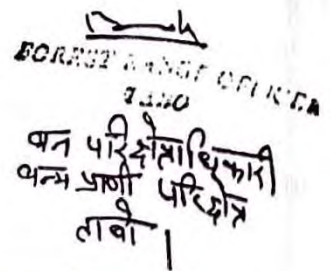 FOREST RANGE OFFICER
TABO
वन परिक्षेत्राधिकारी
वन्य प्राणी परिक्षेत्र
ताबो।